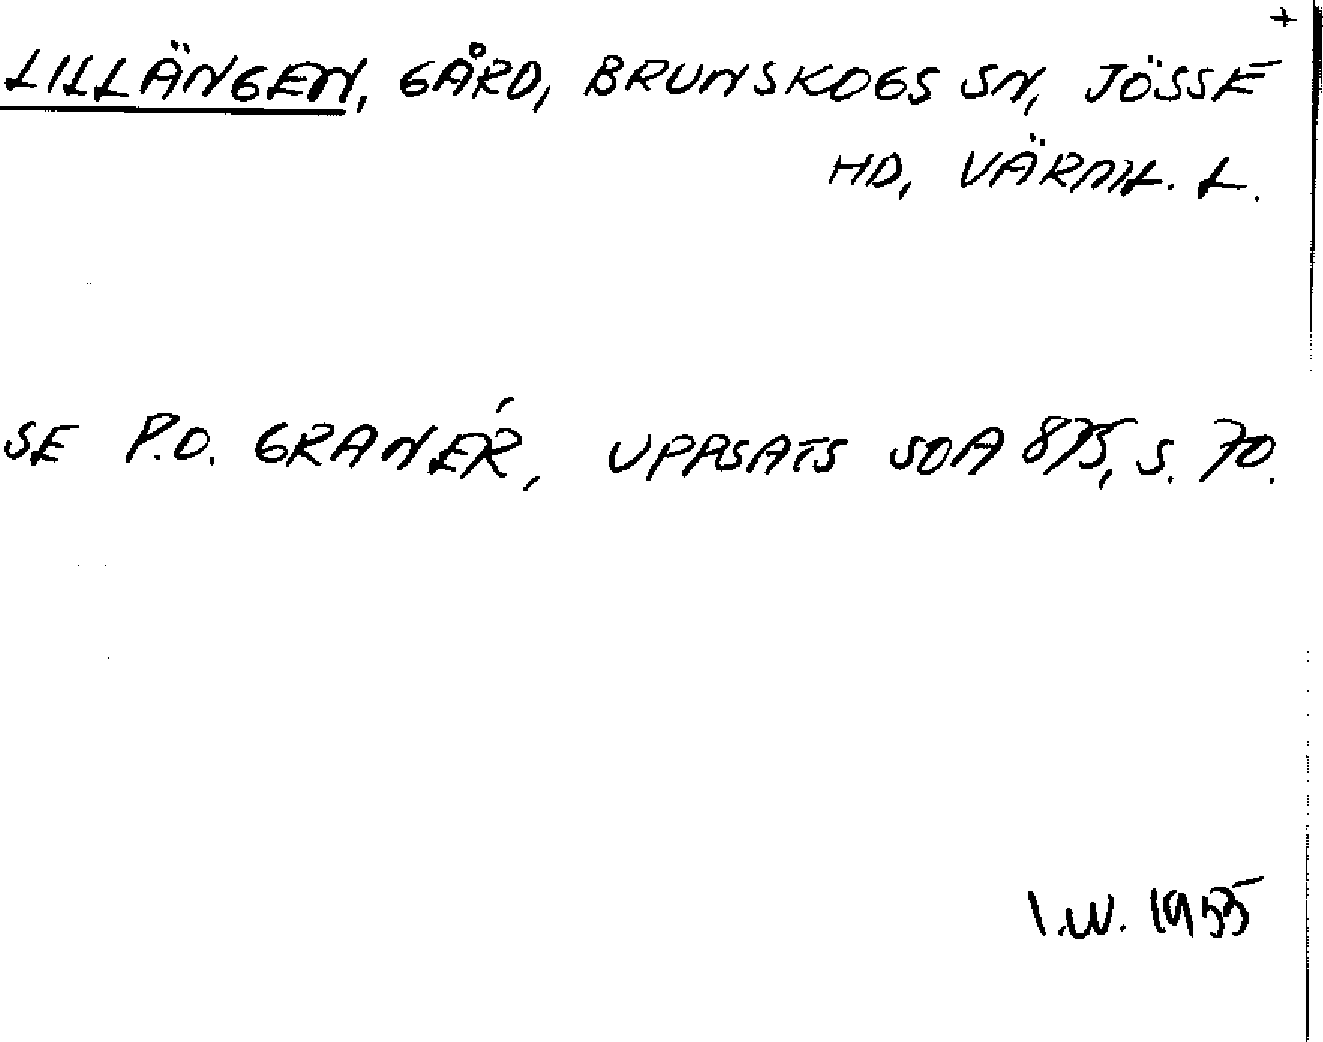 +
LILLÄNGEN, GÅRD, BRUNSKOGS SN, JÖSSE
HD, VÄRML. L.
SE P.O. GRANÉR, UPPSATS SOA 875, S. 70.
I.W. 1955